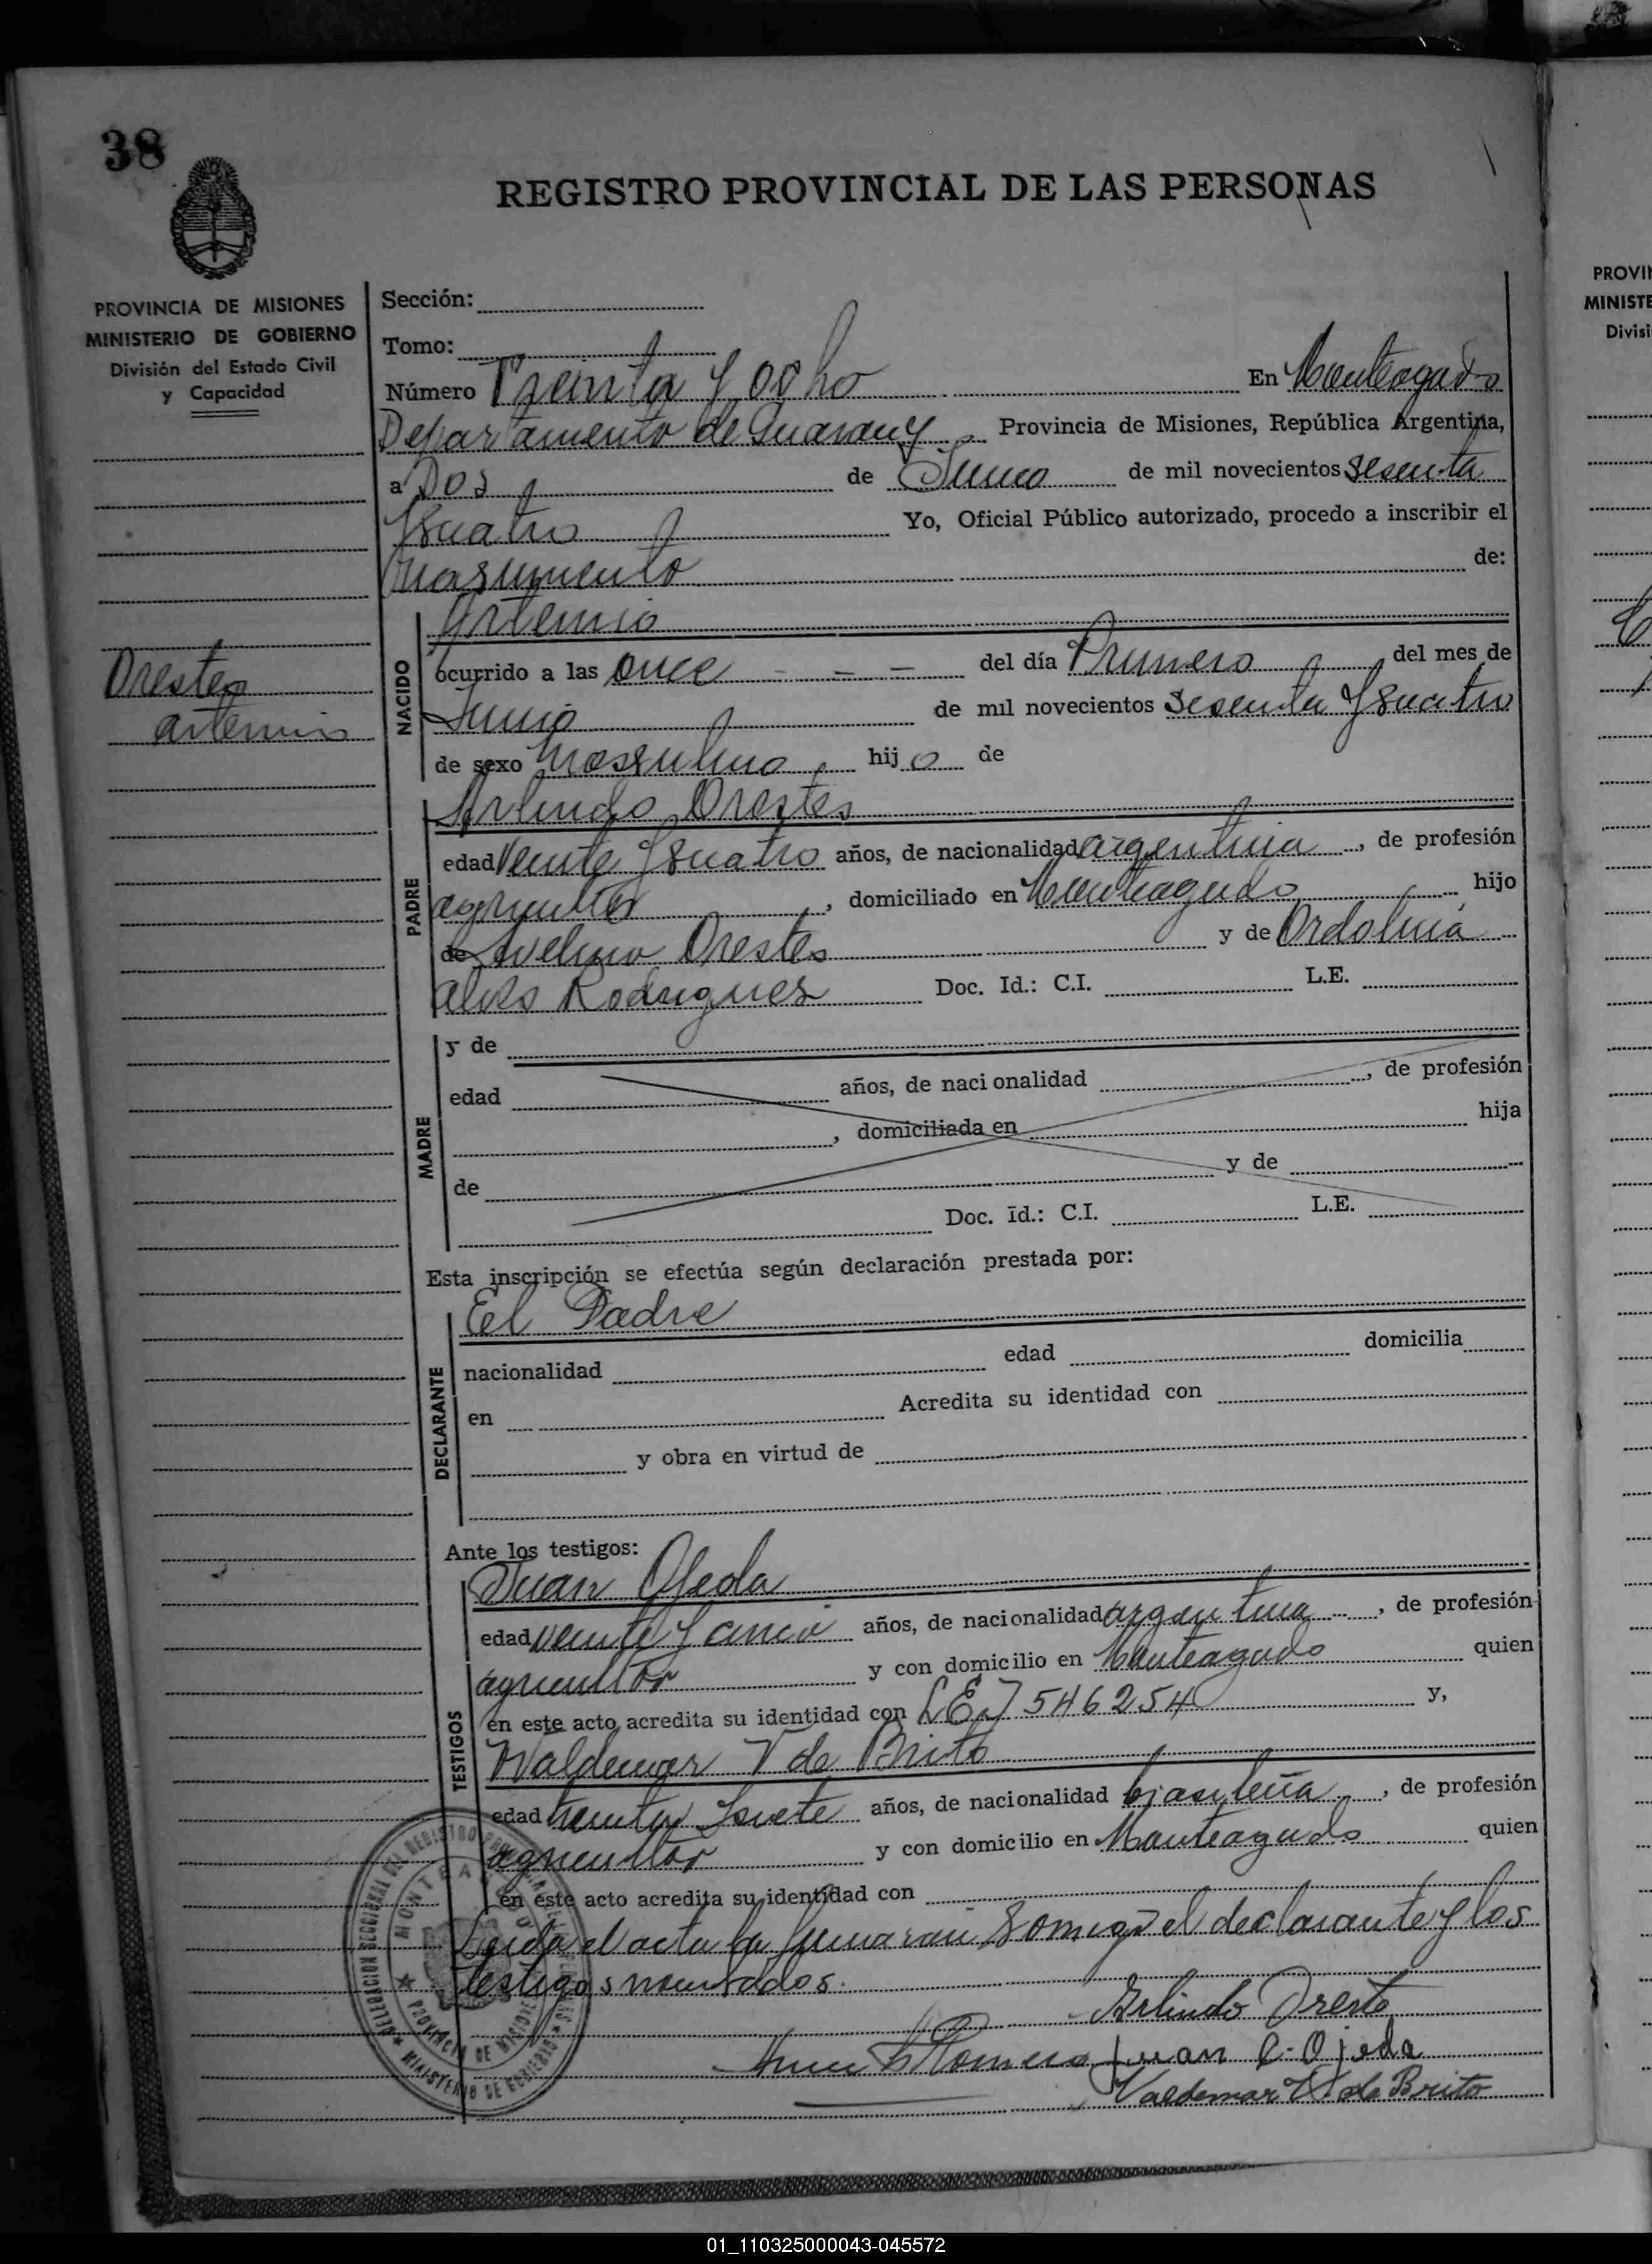 38
REGISTRO PROVINCIAL DE LAS PERSONAS
PROVINCIA DE MISIONES
MINISTERIO DE GOBIERNO
División del Estado Civil
y Capacidad
Orestes
artemio
Sección:
Tomo:
Número Treinta y ocho En Monteagudo
Departamento de Guarany Provincia de Misiones, República Argentina,
a Dos de Junio de mil novecientos sesenta
y cuatro Yo, Oficial Público autorizado, procedo a inscribir el
nacimiento de:
NACIDO
Artemio
ocurrido a las once - - - del día Primero del mes de
Junio de mil novecientos sesenta y cuatro
de sexo masculino, hijo de
PADRE
Arlindo Orestes
edad Veinte y cuatro años, de nacionalidad argentina, de profesión
agricultor, domiciliado en Monteagudo hijo
de Avelino Orestes y de Ordolina
alves Rodrigues Doc. Id.: C.I. L.E.
MADRE
y de
edad años, de nacionalidad, de profesión
, domiciliada en hija
de y de
Doc. Id.: C.I. L.E.
Esta inscripción se efectúa según declaración prestada por:
DECLARANTE
El Padre
nacionalidad edad domicilia
en Acredita su identidad con
y obra en virtud de
Ante los testigos:
TESTIGOS
Juan Ojeda
edad veinte y cinco años, de nacionalidad argentina, de profesión
agricultor y con domicilio en Monteagudo quien
en este acto acredita su identidad con L.E. 7546254 y,
Waldemar V de Brito
edad treinta y siete años, de nacionalidad brasileña, de profesión
agricultor y con domicilio en Monteagudo quien
en este acto acredita su identidad con
Leida el acta la firmaran conmigo el declarante y los
testigos nombrados.
Arlindo Oreste
Romero Juan C. Ojeda
Valdemar V. de Brito
DELEGACION SECCIONAL DEL REGISTRO PROVINCIAL DE LAS PERSONAS
MONTEAGUDO
PROVINCIA DE MISIONES
MINISTERIO DE GOBIERNO
PROVIN
MINISTE
Divisi
01_110325000043-045572